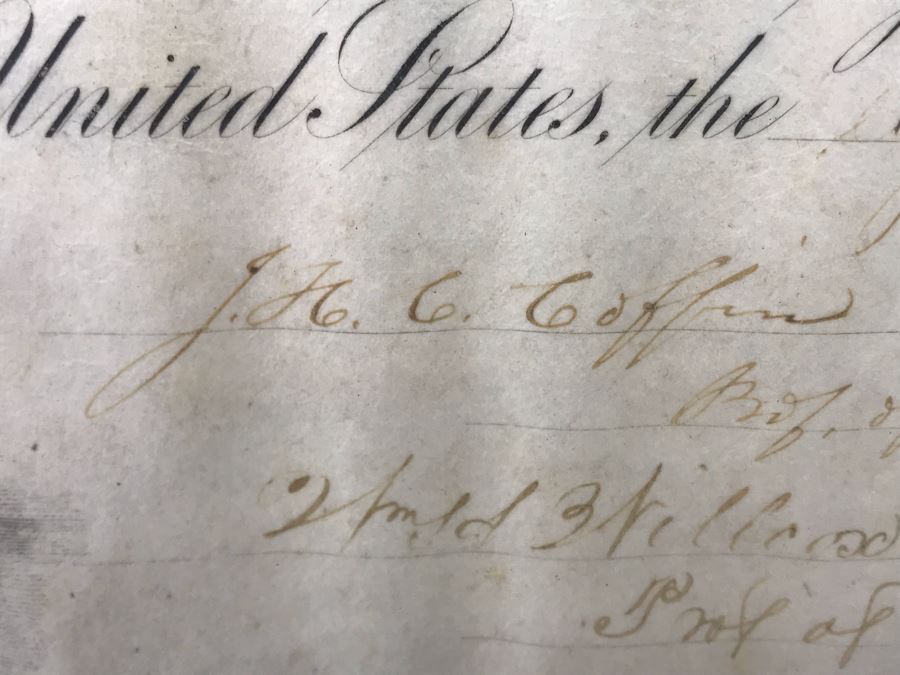 United States, the
J. H. C. Coffin
Prof. of
Willcox
Prof of